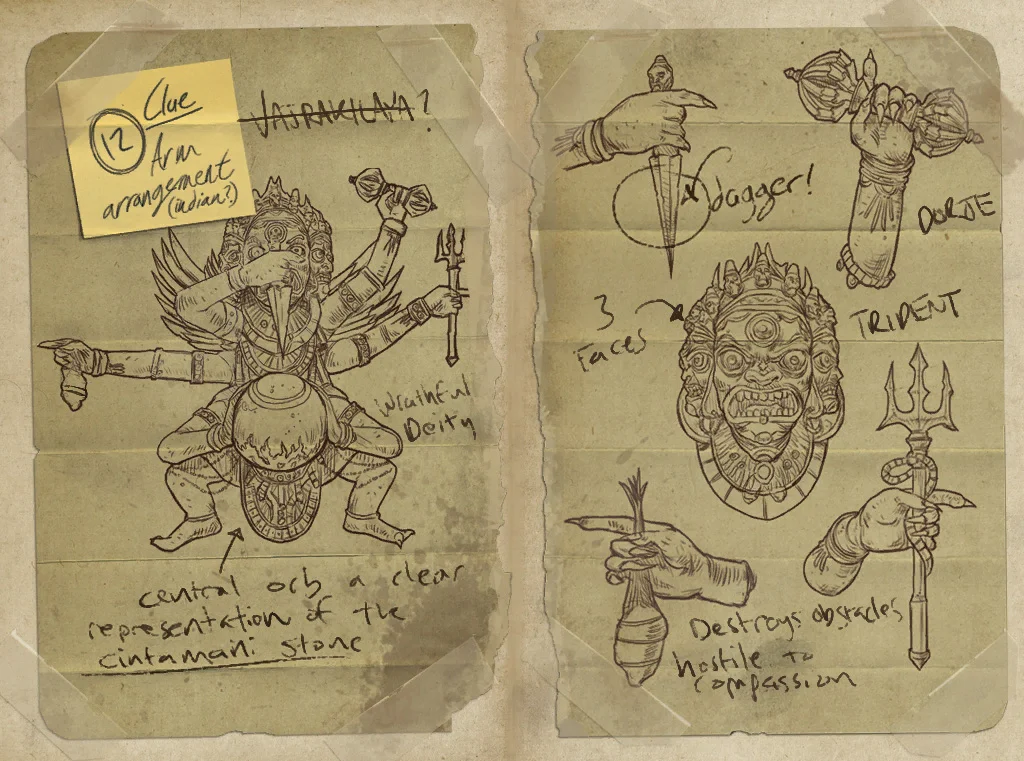 Clue
12
Arm
arrangement
(indian?)
VAJRAKILAYA?
Wrathful
Deity
central orb a clear
representation of the
cintamani stone
dagger!
DORJE
3
Faces
TRIDENT
Destroys obstacles
hostile to
compassion